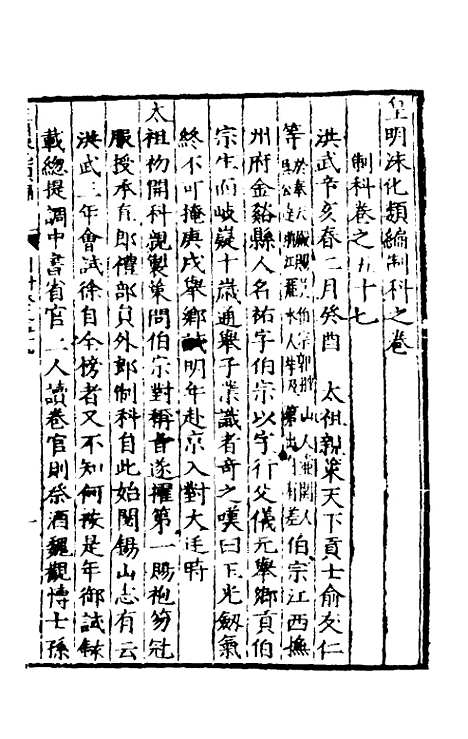 皇明泳化類編制科之卷
制科卷之五十七
洪武辛亥春二月癸酉 太祖親策天下貢士俞友仁
等 伯宗江西撫
州府金谿縣人名祐字伯宗以字行父儀元舉鄉貢伯
宗生而岐嶷十歲通舉子業識者奇之嘆曰玉光劔氣
終不可掩庚戌舉鄉試明年赴京入對大廷時
太祖初開科親製策問伯宗對稱旨遂擢第一賜袍笏冠
服授承直郎禮部員外郎制科自此始閱錫山志有云
洪武三年會試徐自全榜者又不知何按是年御試錄
載總提調中書省官二人讀卷官則祭酒魏觀博士孫